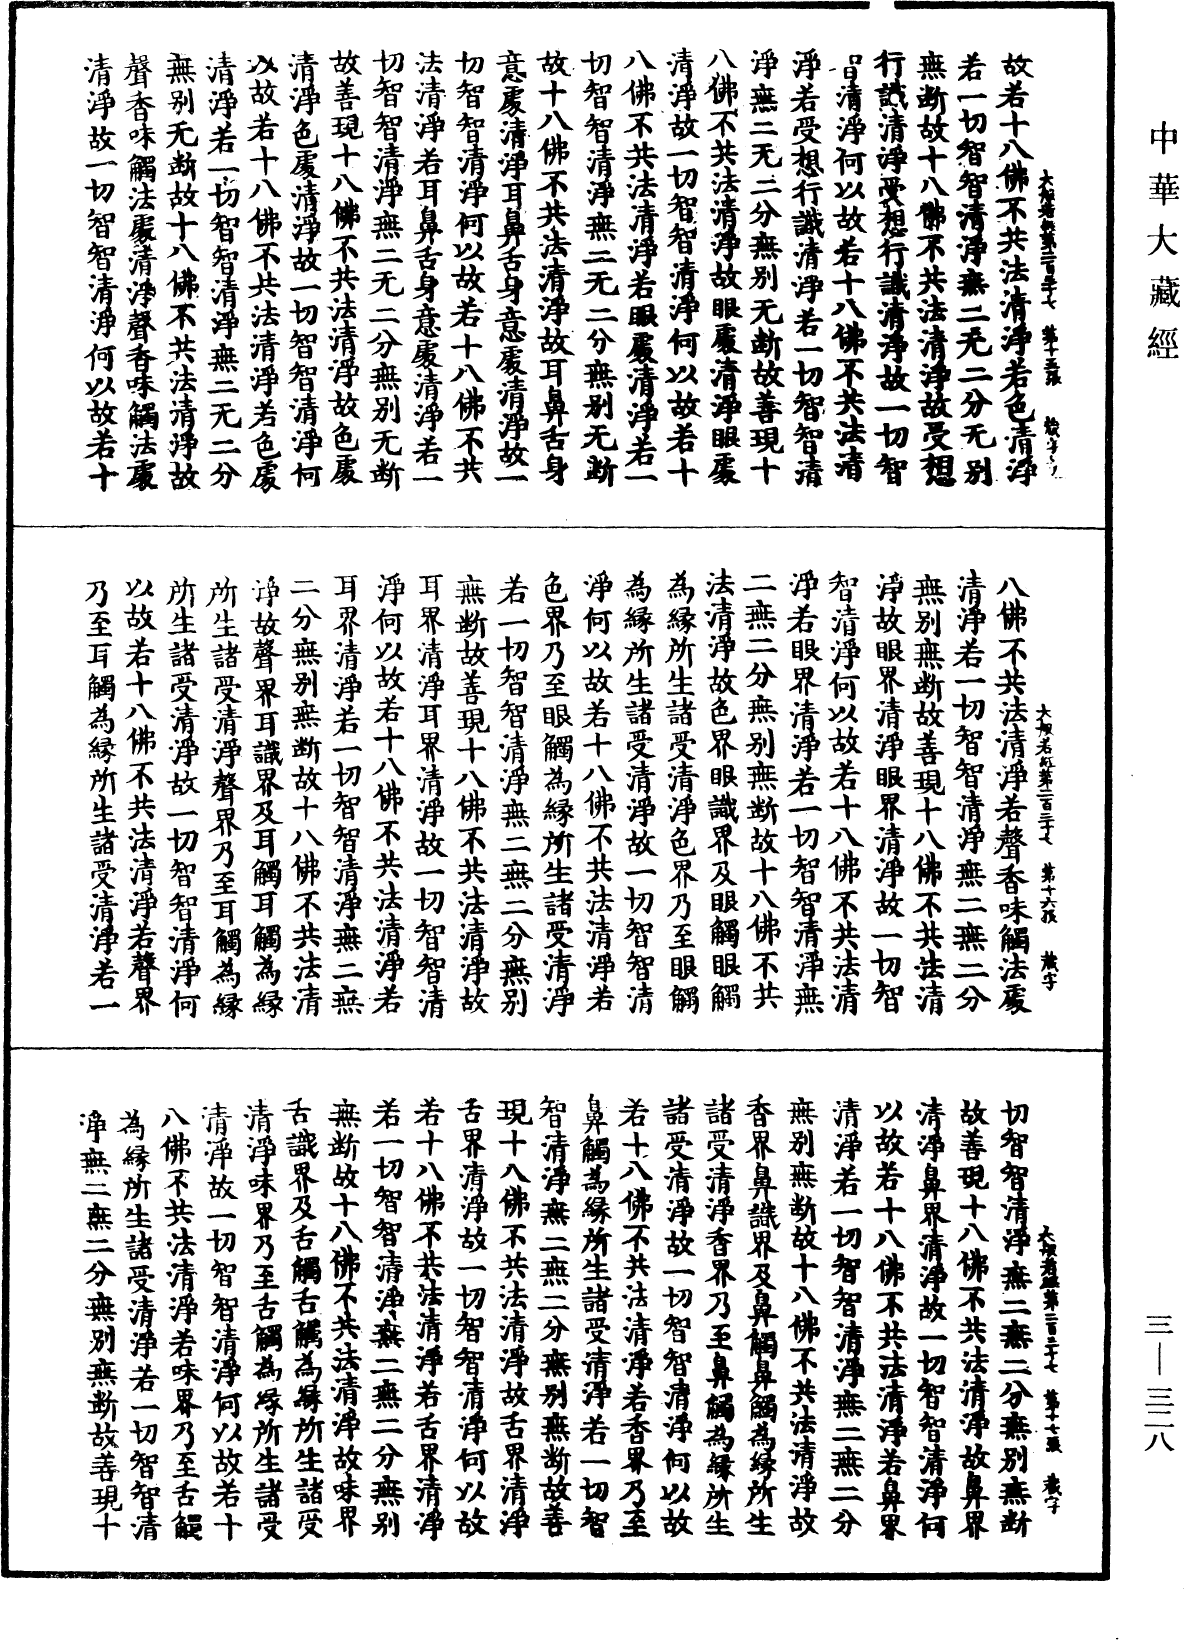 中華大藏經
大般若經第二百三十七 第十五張
故若十八佛不共法清淨若色清淨
若一切智智清淨無二无二分无別
無斷故十八佛不共法清淨故受想
行識清淨受想行識清淨故一切智
智清淨何以故若十八佛不共法清
淨若受想行識清淨若一切智智清
淨無二无二分無別无斷故善現十
八佛不共法清淨故眼處清淨眼處
清淨故一切智智清淨何以故若十
八佛不共法清淨若眼處清淨若一
切智智清淨無二无二分無別无斷
故十八佛不共法清淨故耳鼻舌身
意處清淨耳鼻舌身意處清淨故一
切智智清淨何以故若十八佛不共
法清淨若耳鼻舌身意處清淨若一
切智智清淨無二无二分無別无斷
故善現十八佛不共法清淨故色處
清淨色處清淨故一切智智清淨何
以故若十八佛不共法清淨若色處
清淨若一切智智清淨無二无二分
無別无斷故十八佛不共法清淨故
聲香味觸法處清淨聲香味觸法處
清淨故一切智智清淨何以故若十
大般若經第二百三十七 第十六張
八佛不共法清淨若聲香味觸法處
清淨若一切智智清淨無二無二分
無別無斷故善現十八佛不共法清
淨故眼界清淨眼界清淨故一切智
智清淨何以故若十八佛不共法清
淨若眼界清淨若一切智智清淨無
二無二分無別無斷故十八佛不共
法清淨故色界眼識界及眼觸眼觸
為緣所生諸受清淨色界乃至眼觸
為緣所生諸受清淨故一切智智清
淨何以故若十八佛不共法清淨若
色界乃至眼觸為緣所生諸受清淨
若一切智智清淨無二無二分無別
無斷故善現十八佛不共法清淨故
耳界清淨耳界清淨故一切智智清
淨何以故若十八佛不共法清淨若
耳界清淨若一切智智清淨無二無
二分無別無斷故十八佛不共法清
淨故聲界耳識界及耳觸耳觸為緣
所生諸受清淨聲界乃至耳觸為緣
所生諸受清淨故一切智智清淨何
以故若十八佛不共法清淨若聲界
乃至耳觸為緣所生諸受清淨若一
大般若經第二百三十七 第十七張
切智智清淨無二無二分無別無斷
故善現十八佛不共法清淨故鼻界
清淨鼻界清淨故一切智智清淨何
以故若十八佛不共法清淨若鼻界
清淨若一切智智清淨無二無二分
無別無斷故十八佛不共法清淨故
香界鼻識界及鼻觸鼻觸為緣所生
諸受清淨香界乃至鼻觸為緣所生
諸受清淨故一切智智清淨何以故
若十八佛不共法清淨若香界乃至
鼻觸為緣所生諸受清淨若一切智
智清淨無二無二分無別無斷故善
現十八佛不共法清淨故舌界清淨
舌界清淨故一切智智清淨何以故
若十八佛不共法清淨若舌界清淨
若一切智智清淨無二無二分無別
無斷故十八佛不共法清淨故味界
舌識界及舌觸舌觸為緣所生諸受
清淨味界乃至舌觸為緣所生諸受
清淨故一切智智清淨何以故若十
八佛不共法清淨若味界乃至舌觸
為緣所生諸受清淨若一切智智清
淨無二無二分無別無斷故善現十
三—三二八